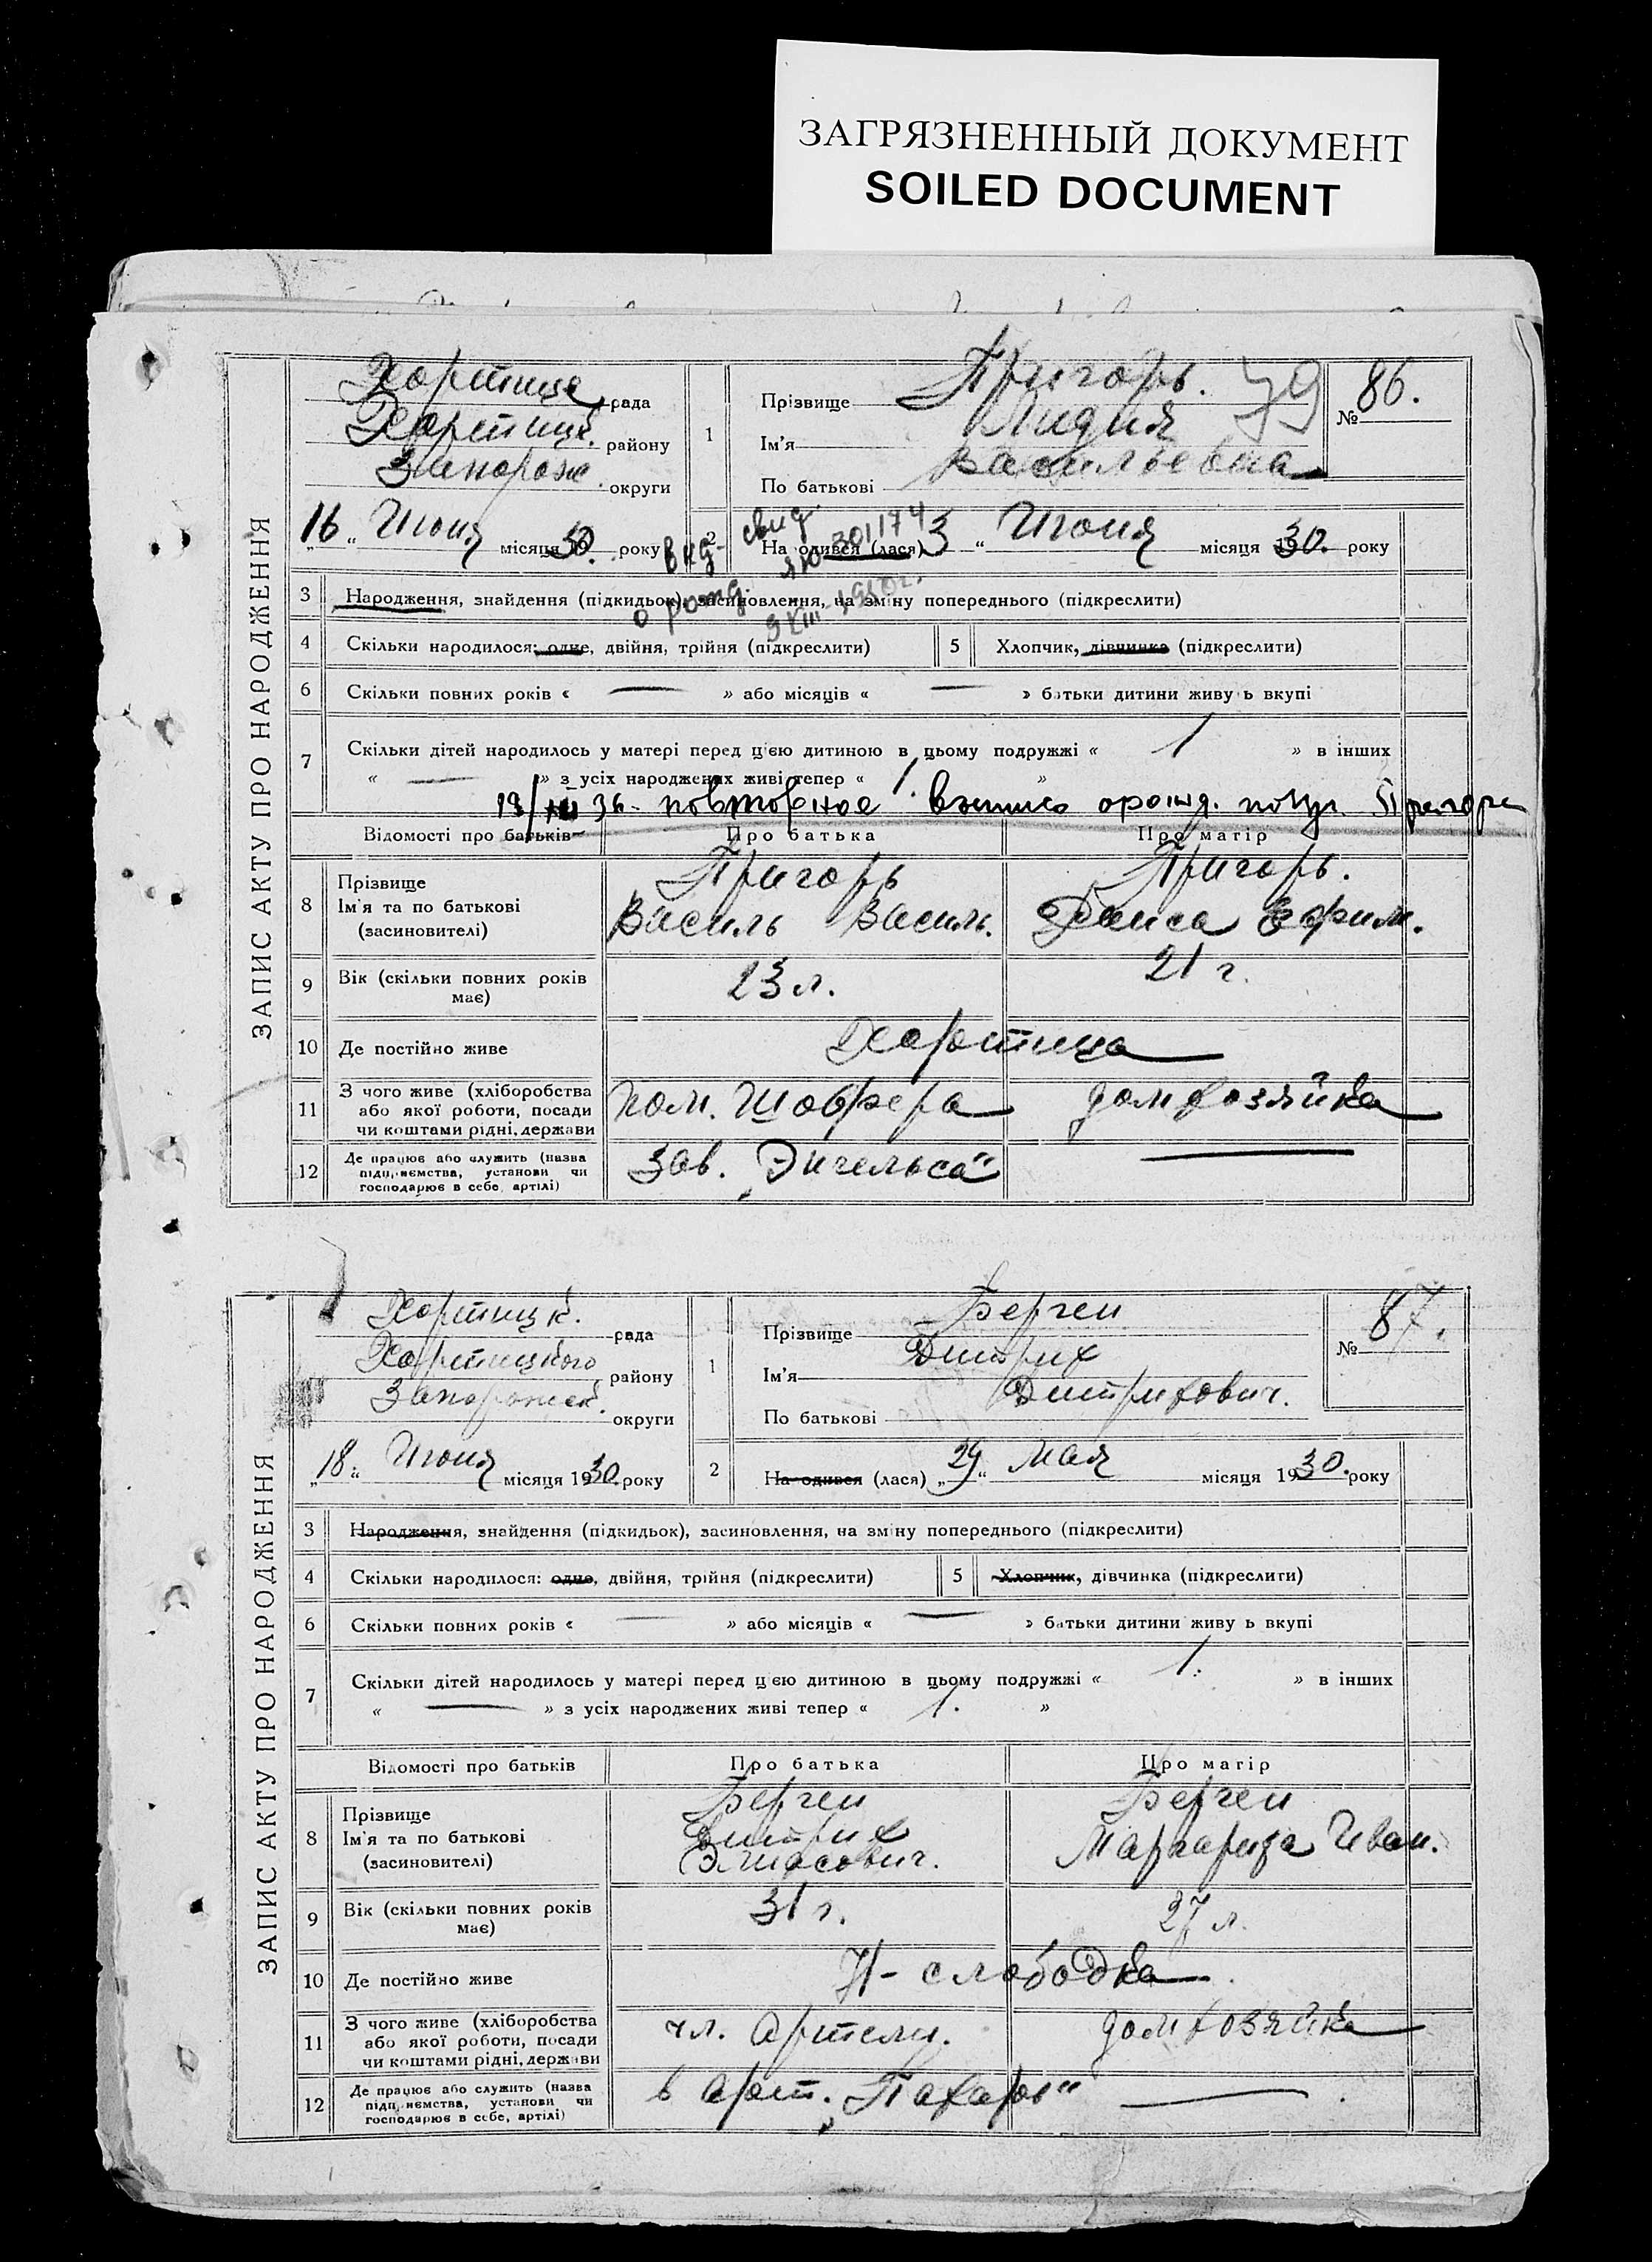 ЗАГРЯЗНЕННЫЙ ДОКУМЕНТ
SOILED DOCUMENT
ЗАПИС АКТУ ПРО НАРОДЖЕННЯ
Хортице рада
Хортицк. району
Запорож. округи
16 „ Июня місяця 30. року
1 Прізвище Пригорь. 79
Ім'я Лидия
По батькові Васильевна
№ 86.
2 На одився (лася) 3 “ Июня місяця 1930. року
свид.
ЯЮ 301174
о рожд.
3 Народження, знайдення (підкидьок), засиновлення, на зміну попереднього (підкреслити)
4 Скільки народилося: одне, двійня, трійня (підкреслити) 5 Хлопчик, дівчинка (підкреслити)
6 Скільки повних років « — » або місяців « — » батьки дитини живу ь вкупі
7 Скільки дітей народилось у матері перед цією дитиною в цьому подружжі « 1 » в інших
« — » з усіх народжених живі тепер « 1. »
повторное
Відомості про батьків Про батька Про матір
8 Прізвище Ім'я та по батькові (засиновителі)
Пригорь Пригорь.
Василь Василь. Раиса Ефим.
9 Вік (скільки повних років має) 23 л. 21 г.
10 Де постійно живе Хортица
11 З чого живе (хліборобства або якої роботи, посади чи коштами рідні, держави
пом. Шоффера домхозяйка
12 Де працює або служить (назва підприємства, установи чи господарює в себе, артілі)
Зав. „Энгельса“ —
ЗАПИС АКТУ ПРО НАРОДЖЕННЯ
Хортицк. рада
Хортицкого району
Запорожск. округи
„18“ Июня місяця 1930. року
1 Прізвище Берген
Ім'я Дитрих
По батькові Дитрихович.
№ 87.
2 На одився (лася) „29“ Мая місяця 1930. року
3 Народження, знайдення (підкидьок), засиновлення, на зміну попереднього (підкреслити)
4 Скільки народилося: одне, двійня, трійня (підкреслити) 5 Хлопчик, дівчинка (підкреслити)
6 Скільки повних років « — » або місяців « — » батьки дитини живу ь вкупі
7 Скільки дітей народилось у матері перед цією дитиною в цьому подружжі « 1. » в інших
« — » з усіх народжених живі тепер « 1. »
Відомості про батьків Про батька Про матір
8 Прізвище Ім'я та по батькові (засиновителі)
Берген Берген
Дитрих Маргарита Иван.
9 Вік (скільки повних років має) 31 г. 27 л.
10 Де постійно живе Н-слободка
11 З чого живе (хліборобства або якої роботи, посади чи коштами рідні, держави
чл. Артели. домхозяйка
12 Де працює або служить (назва підприємства, установи чи господарює в себе, артілі)
в арт. „Пахарь“ —